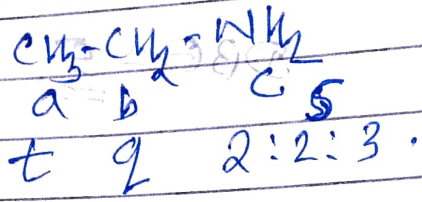 CH₃-CH₂-NH₂
a b c 5
t q 2:2:3.